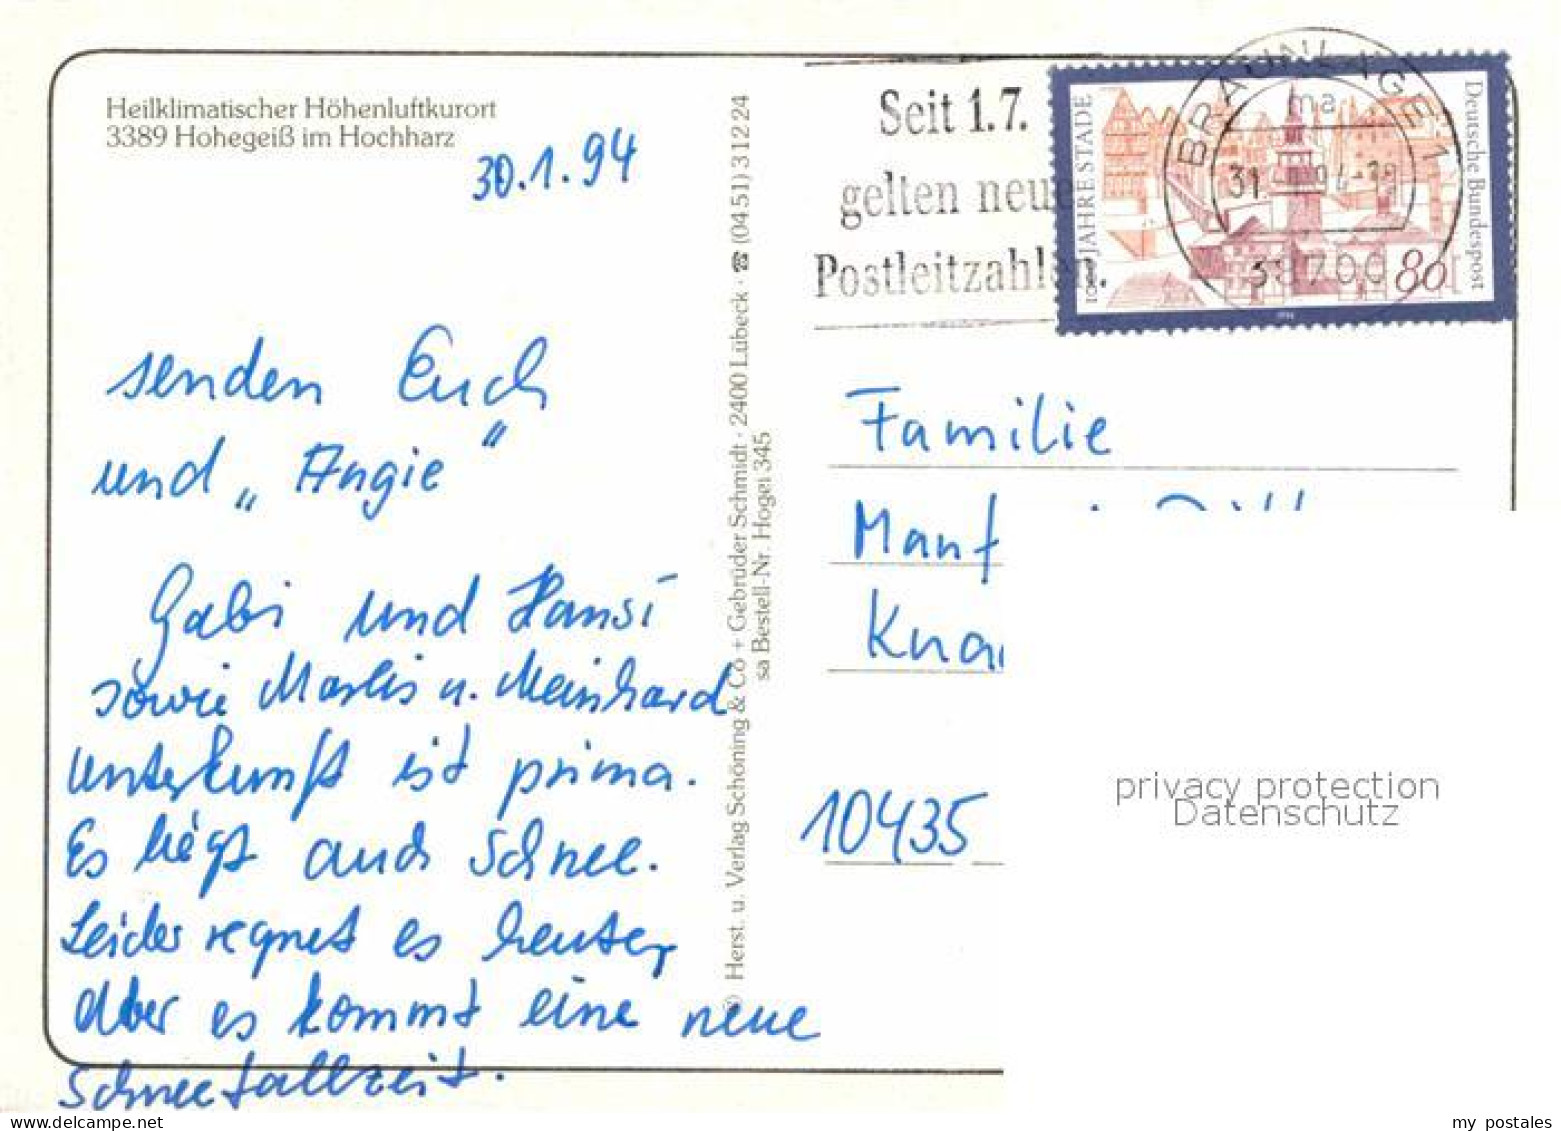 Heilklimatischer Höhenluftkurort
3389 Hohegeiß im Hochharz
30.1.94
senden Euch
und „Angie“
Gabi und Hansi
sowie Marlis u. Meinhard
Unterkunft ist prima.
Es liegt auch Schnee.
Leider regnet es heute,
aber es kommt eine neue
Schneefallzeit.
Herst. u. Verlag Schöning & Co + Gebrüder Schmidt · 2400 Lübeck · ☎ (04 51) 3 12 24
sa Bestell-Nr. Hogei 345
Seit 1.7.
gelten neue
Postleitzahlen.
BRAUNLAGE 1
ma
31
38700
1000 JAHRE STADE
Deutsche Bundespost
80
Familie
Manf
Kna
10435
privacy protection
Datenschutz
my postales